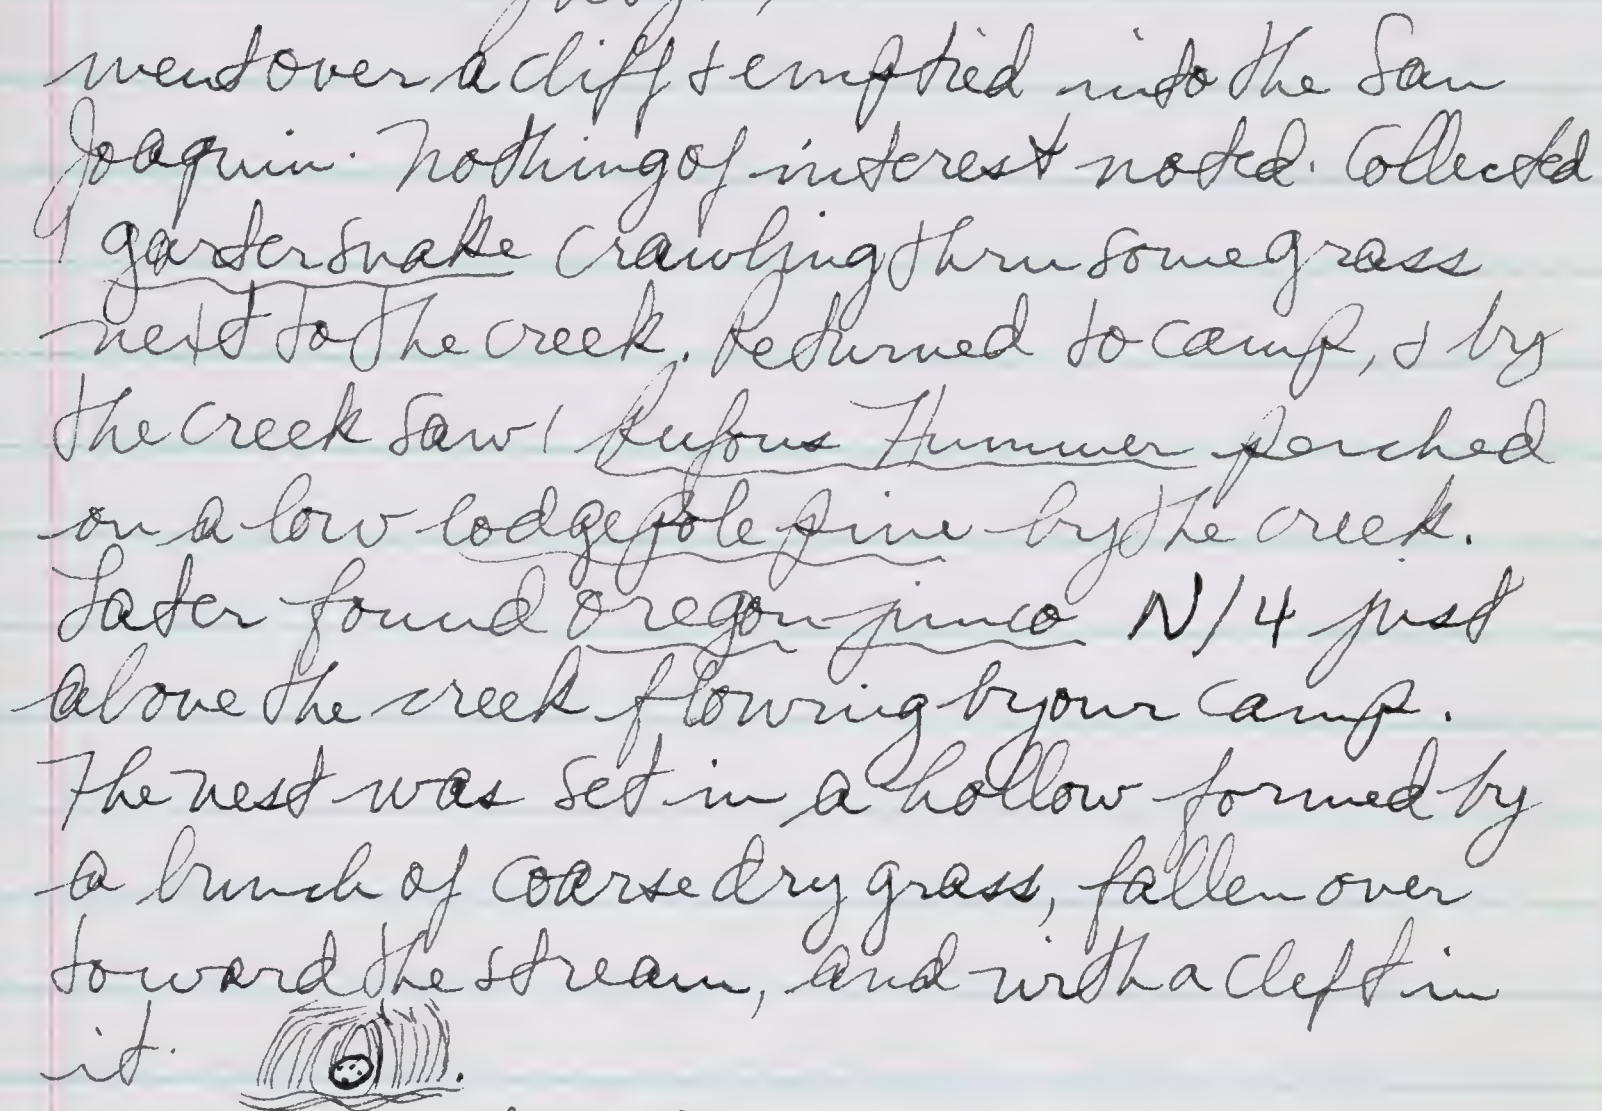 went over a cliff & emptied into the San
Joaquin. Nothing of interest noted. Collected
1 garter snake crawling thru some grass
next to the creek. Returned to camp, & by
the creek saw 1 Rufous Hummer perched
on a low lodgepole pine by the creek.
Later found oregon junco N/4 just
above the creek flowing by our camp.
The nest was set in a hollow formed by
a bunch of coarse dry grass, fallen over
toward the stream, and with a cleft in
it.